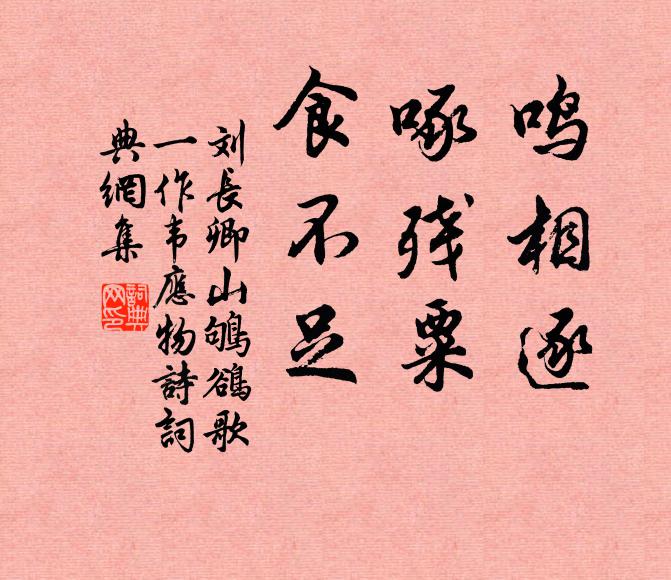 鸣相逐
啄残粟
食不足
刘長卿山鴝鵒歌
一作韦應物詩詞
典網集
詞典网印